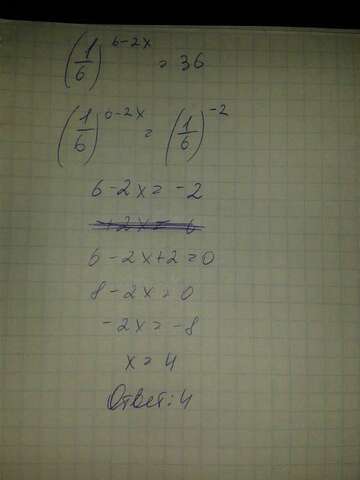 (1/6)^6-2x = 36
(1/6)^6-2x = (1/6)^-2
6-2x = -2
6-2x+2=0
8-2x=0
-2x=-8
x=4
Ответ: 4